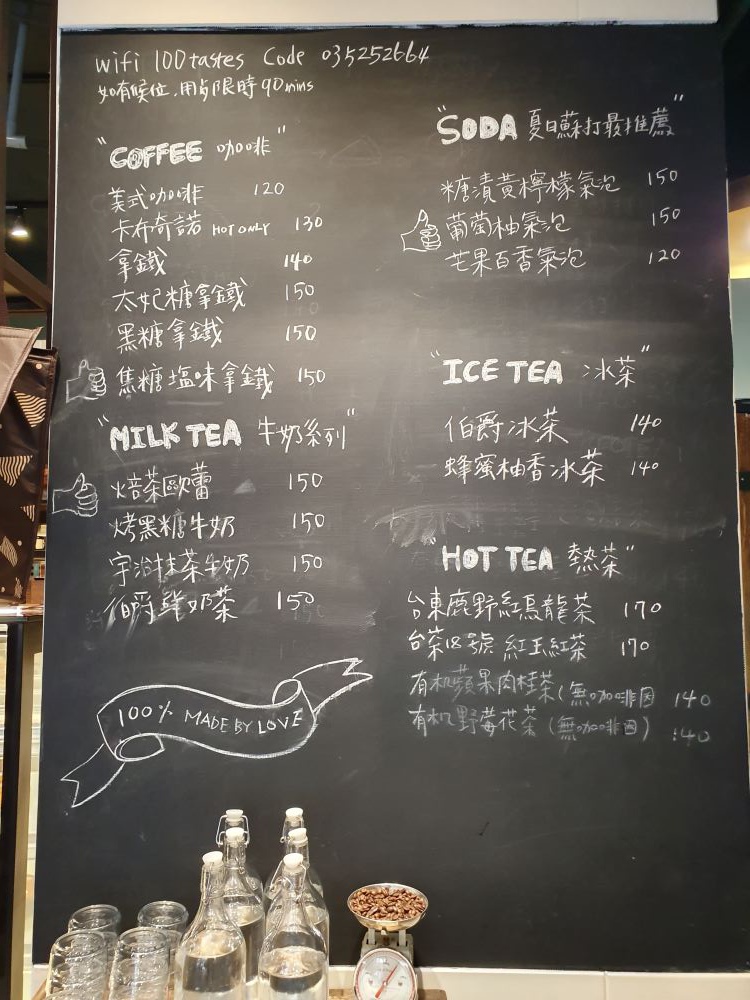 wifi 100tastes Code 035252664
如有候位,用餐限時90mins
"COFFEE 咖啡"
美式咖啡 120
卡布奇諾 HOT ONLY 130
拿鐵 140
太妃糖拿鐵 150
黑糖拿鐵 150
焦糖塩味拿鐵 150
"MILK TEA 牛奶系列"
焙茶歐蕾 150
烤黑糖牛奶 150
宇治抹茶牛奶 150
伯爵鮮奶茶 150
100% MADE BY LOVE
"SODA 夏日蘇打最推薦"
糖漬黃檸檬氣泡 150
葡萄柚氣泡 150
芒果百香氣泡 120
"ICE TEA 冰茶"
伯爵冰茶 140
蜂蜜柚香冰茶 140
"HOT TEA 熱茶"
台東鹿野紅烏龍茶 170
台茶18號 紅玉紅茶 170
有机蘋果肉桂茶(無咖啡因 140
有机野莓花茶(無咖啡因) 140